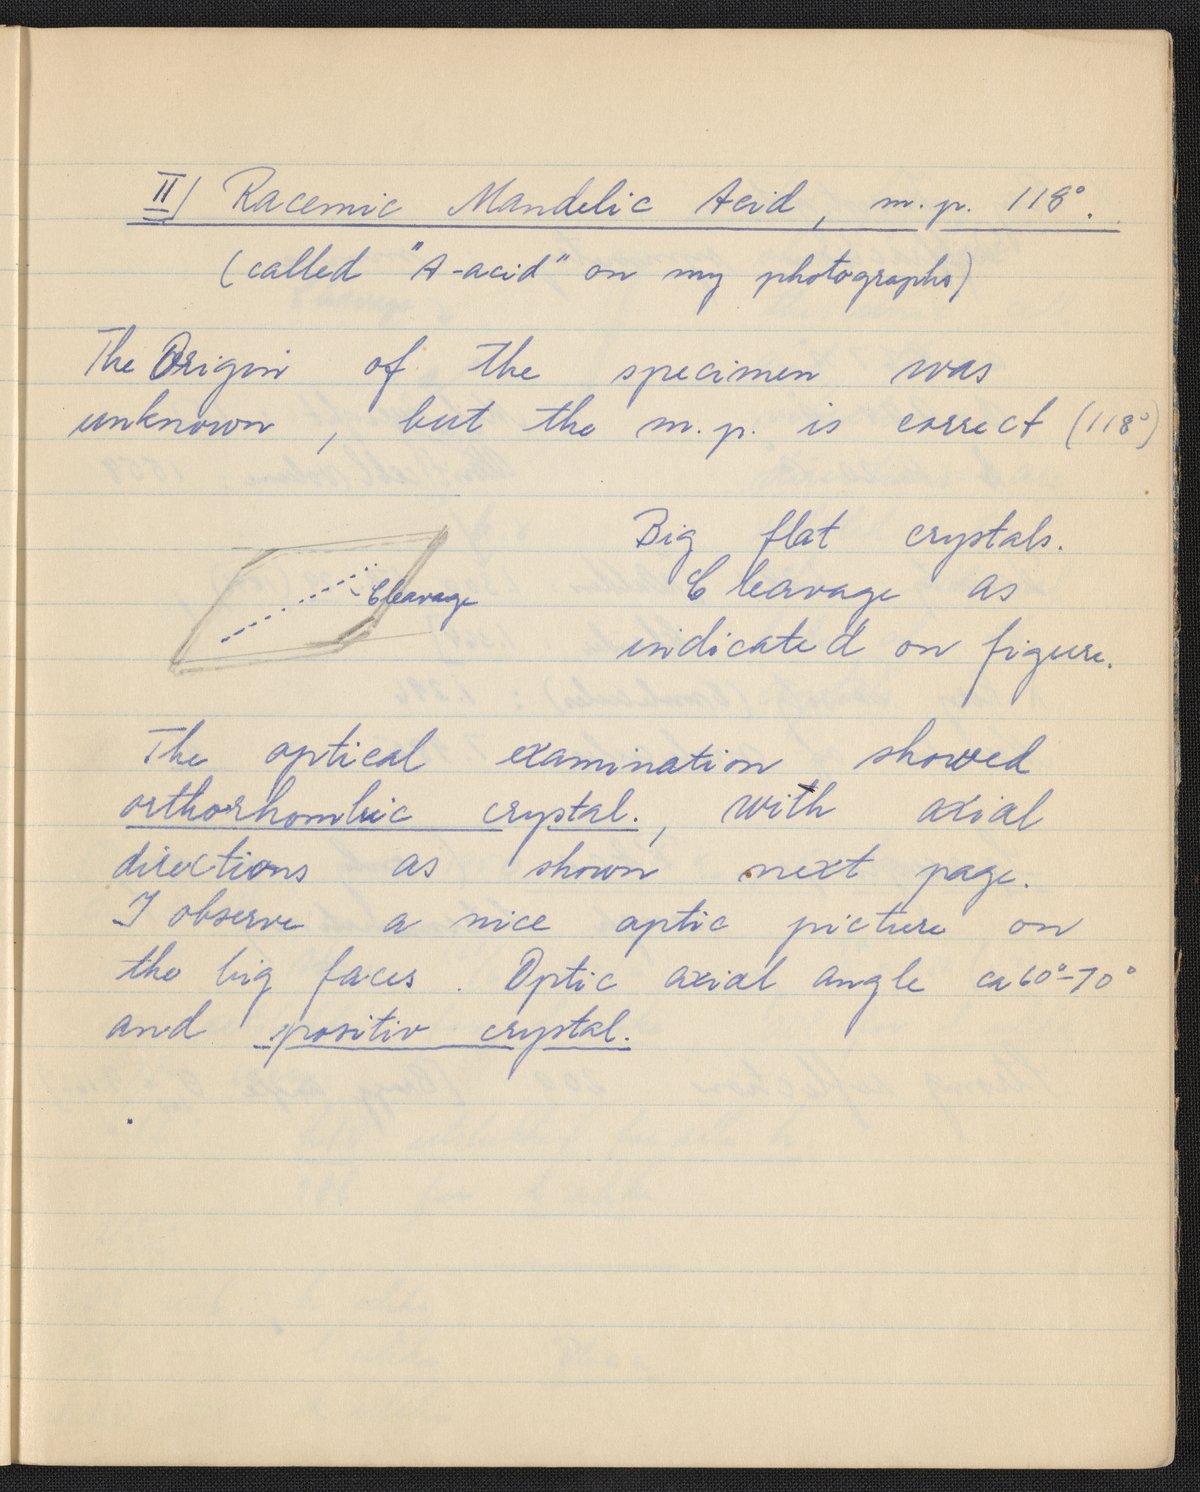 II) Racemic Mandelic Acid, m.p. 118°.
(called "A-acid" on my photographs)
The Origin of the specimen was
unknown, but the m.p. is correct (118°)
Big flat crystals.
Cleavage as
Cleavage
indicated on figure.
The optical examination showed
orthorhombic crystal., with axial
directions as shown next page.
I observe a nice optic picture on
the big faces. Optic axial angle ca 60°-70°
and positiv crystal.